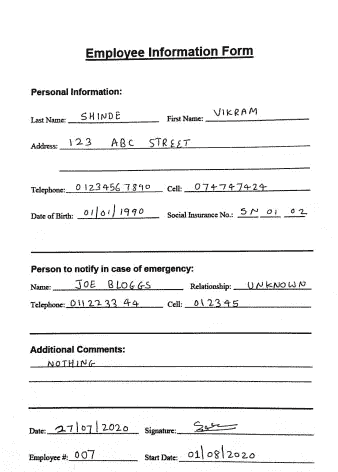 Employee Information Form
Personal Information:
Last Name: SHINDE First Name: VIKRAM
Address: 123 ABC STREET
Telephone: 01234567890 Cell: 074747424
Date of Birth: 01/01/1990 Social Insurance No.: SN 01 02
Person to notify in case of emergency:
Name: JOE BLOGGS Relationship: UNKNOWN
Telephone: 0112233 44 Cell: 012345
Additional Comments:
NOTHING
Date: 27/07/2020 Signature:
Employee #: 007 Start Date: 01/08/2020